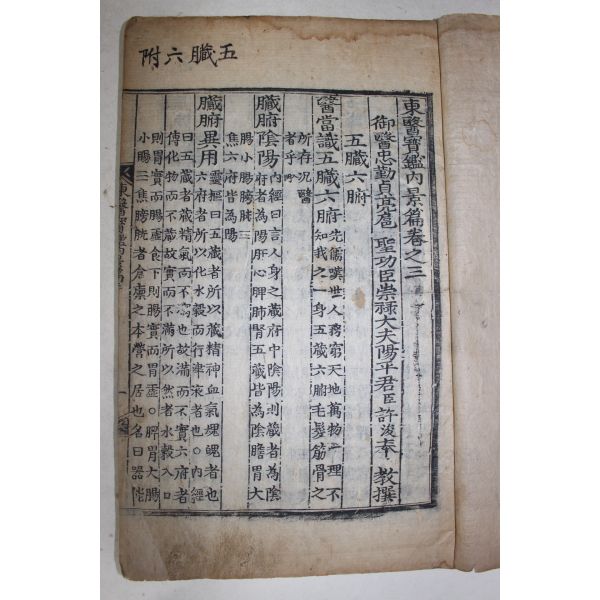 五臟六附
東醫寶鑑內景篇卷之三
御醫忠勤貞亮扈 聖功臣崇祿大夫陽平君臣許浚奉 教撰
五臟六腑
醫當識五臟六腑 先儒嘆世人務窮天地萬物之理不
知我之一身五藏六腑毛髮筋骨之
所存況醫
者乎
臟腑陰陽 內經曰言人身之藏府中陰陽則藏者為陰
府者為陽肝心脾肺腎五藏皆為陰膽胃大
腸小腸膀胱三
焦六府皆為陽
臟腑異用 靈樞曰五藏者所以藏精神血氣魂魄者也
六府者所以化水穀而行津液者也○內經
曰五藏者藏精氣而不瀉也故滿而不實六府者
傳化物而不藏故實而不滿所以然者水穀入口
則胃實而腸虛食下則腸實而胃虛○脾胃大腸
小腸三焦膀胱者倉廩之本營之居也名曰器能